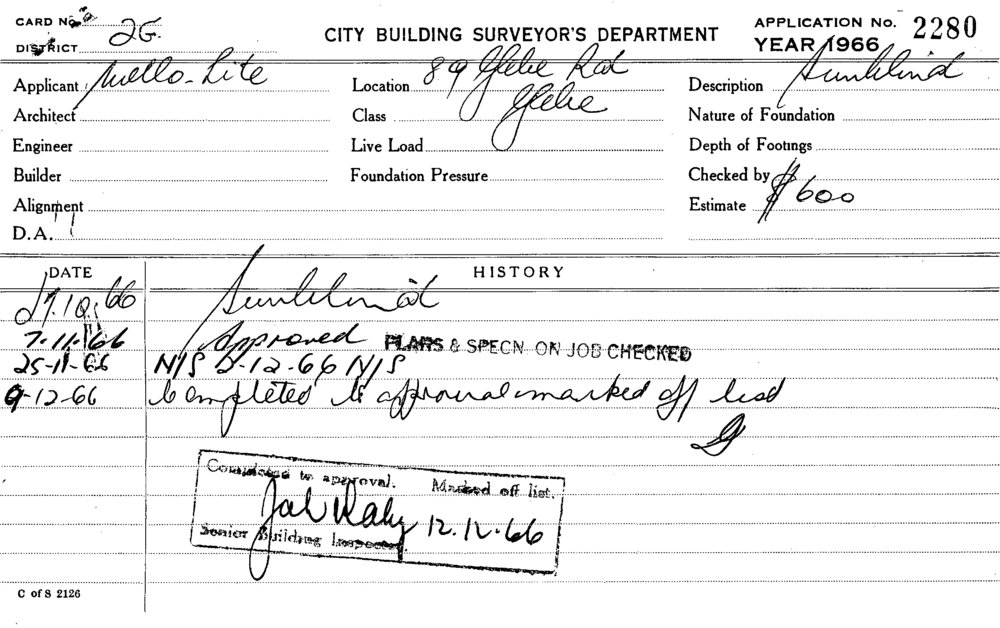 CARD No.
DISTRICT 2G.
CITY BUILDING SURVEYOR'S DEPARTMENT
APPLICATION No. 2280
YEAR 1966
Applicant Mello-Lite
Location 89 Glebe Rd
Glebe
Description Sunblind
Architect
Class
Nature of Foundation
Engineer
Live Load
Depth of Footings
Builder
Foundation Pressure
Checked by
Alignment
Estimate $600
D.A.
DATE
HISTORY
27.10.66 Sunblind
7.11.66 Approved PLANS & SPECN ON JOB CHECKED
25-11-66 N/S 2-12-66 N/S
9-12-66 Completed to approval marked off list
Completed to approval. Marked off list.
12.12.66
Senior Building Inspector.
C of S 2126